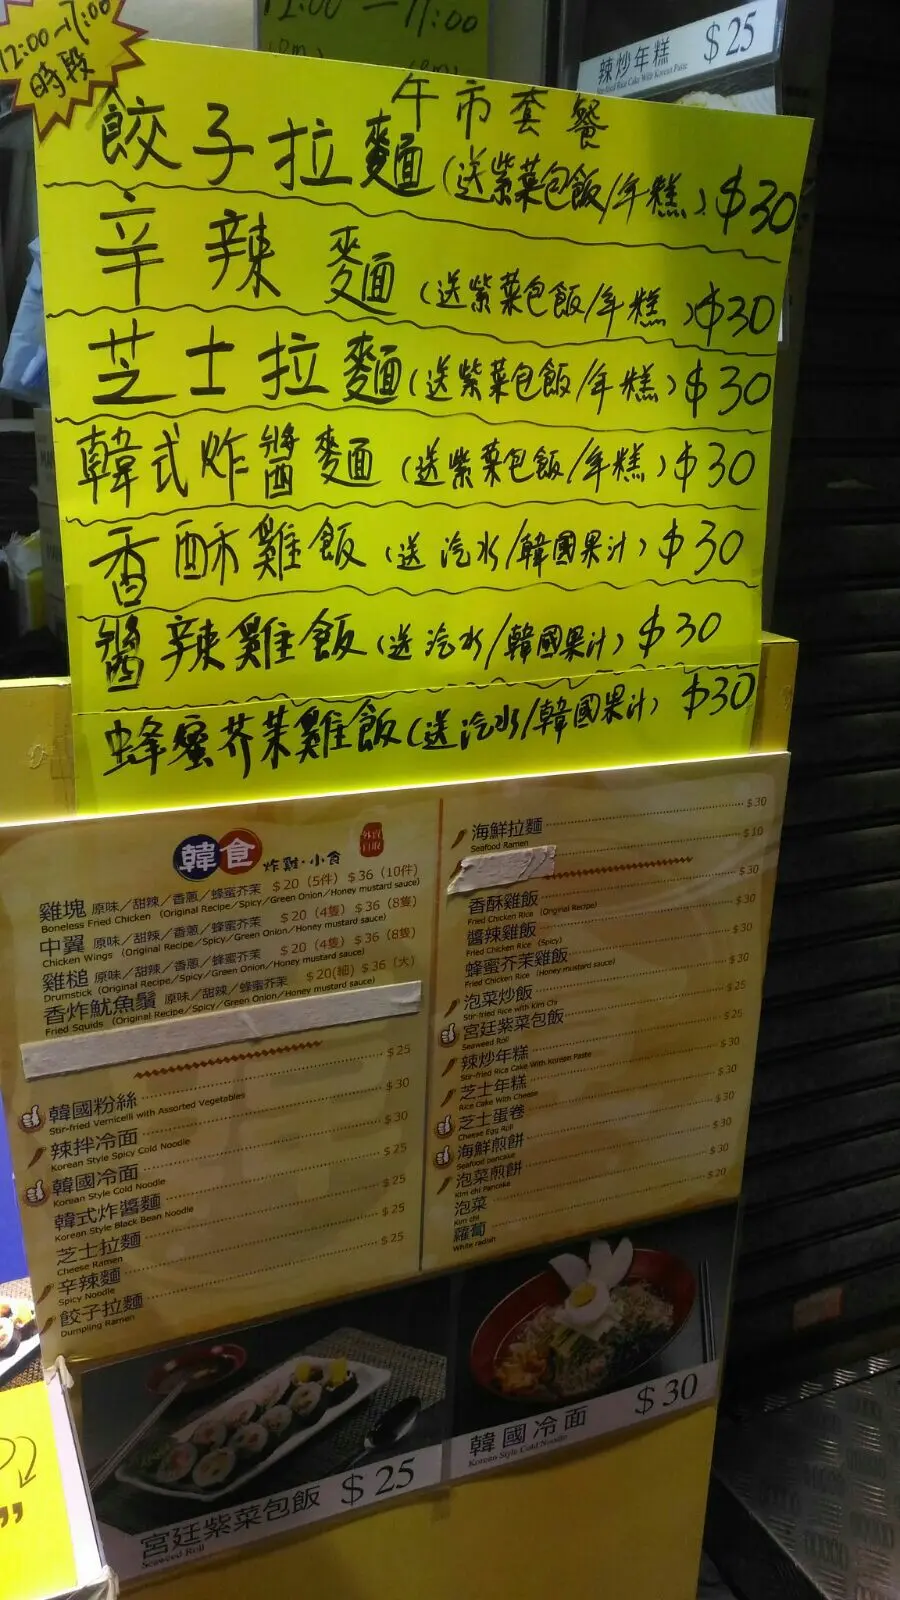 12:00—17:00
12:00—17:00
時段
辣炒年糕 $25
Stir-fried Rice Cake With Korean Paste
午市套餐
餃子拉麵(送紫菜包飯/年糕) $30
辛辣麵(送紫菜包飯/年糕) $30
芝士拉麵(送紫菜包飯/年糕) $30
韓式炸醬麵(送紫菜包飯/年糕) $30
香酥雞飯(送汽水/韓國果汁) $30
醬辣雞飯(送汽水/韓國果汁) $30
蜂蜜芥茉雞飯(送汽水/韓國果汁) $30
韓食 炸雞·小食 外賣自取
雞塊 原味/甜辣/香蔥/蜂蜜芥茉 $20 (5件) $36 (10件)
Boneless Fried Chicken (Original Recipe/Spicy/Green Onion/Honey mustard sauce)
中翼 原味/甜辣/香蔥/蜂蜜芥茉 $20 (4隻) $36 (8隻)
Chicken Wings (Original Recipe/Spicy/Green Onion/Honey mustard sauce)
雞槌 原味/甜辣/香蔥/蜂蜜芥茉 $20 (4隻) $36 (8隻)
Drumstick (Original Recipe/Spicy/Green Onion/Honey mustard sauce)
香炸魷魚鬚 原味/甜辣/蜂蜜芥茉 $20(細) $36 (大)
Fried Squids (Original Recipe/Spicy/Green Onion/Honey mustard sauce)
韓國粉絲 $25
Stir-fried Vermicelli with Assorted Vegetables
辣拌冷面 $30
Korean Style Spicy Cold Noodle
韓國冷面 $30
Korean Style Cold Noodle
韓式炸醬麵 $25
Korean Style Black Bean Noodle
芝士拉麵 $25
Cheese Ramen
辛辣麵 $25
Spicy Noodle
餃子拉麵
Dumpling Ramen
海鮮拉麵 $30
Seafood Ramen
$10
香酥雞飯 $30
Fried Chicken Rice (Original Recipe)
醬辣雞飯 $30
Fried Chicken Rice (Spicy)
蜂蜜芥茉雞飯 $30
Fried Chicken Rice (Honey mustard sauce)
泡菜炒飯 $30
Stir-fried Rice with Kim Chi
宮廷紫菜包飯 $25
Seaweed Roll
辣炒年糕 $25
Stir-fried Rice Cake With Korean Paste
芝士年糕 $30
Rice Cake With Cheese
芝士蛋卷 $30
Cheese Egg Roll
海鮮煎餅 $30
Seafood pancake
泡菜煎餅 $30
Kim chi Pancake
泡菜 $20
Kim chi
蘿蔔
White radish
宮廷紫菜包飯 $25
Seaweed Roll
韓國冷面 $30
Korean Style Cold Noodle